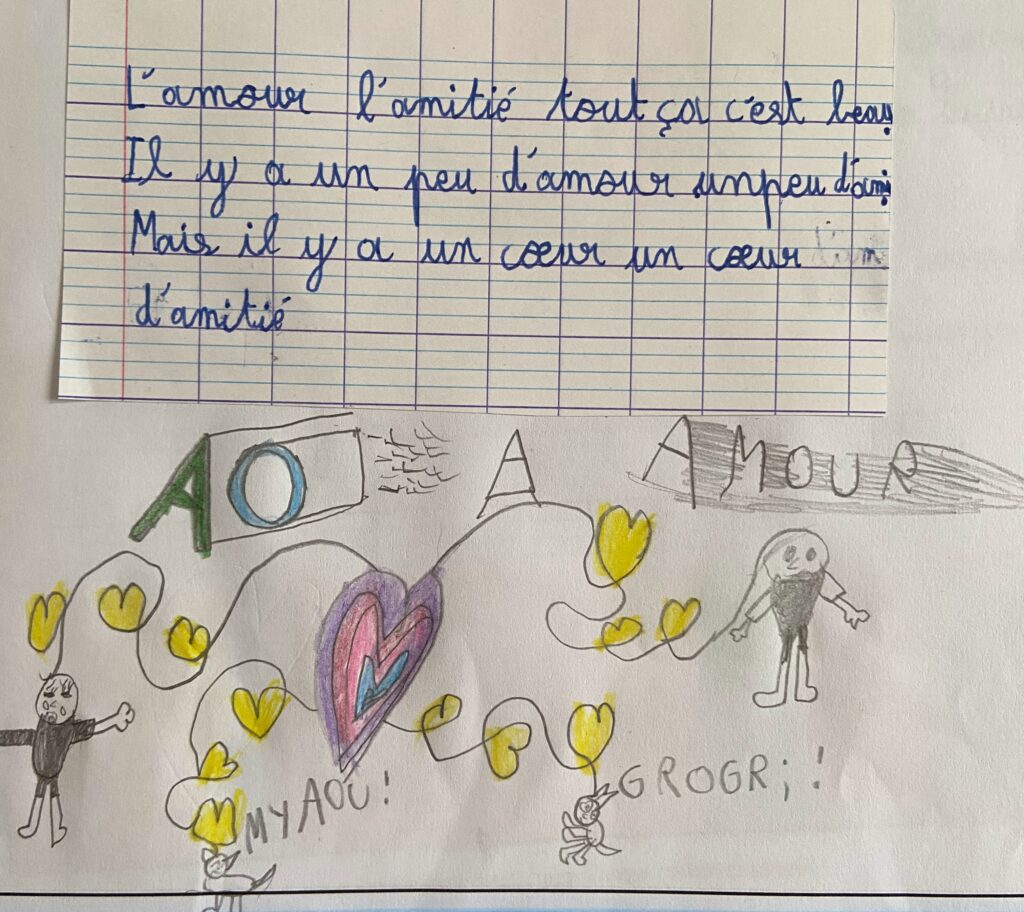 L'amour l'amitié tout ça c'est beau
Il y a un peu d'amour un peu d'ami
Mais il y a un cœur un cœur
d'amitié
AO A AMOUR
MYAOU!
GROGR;!